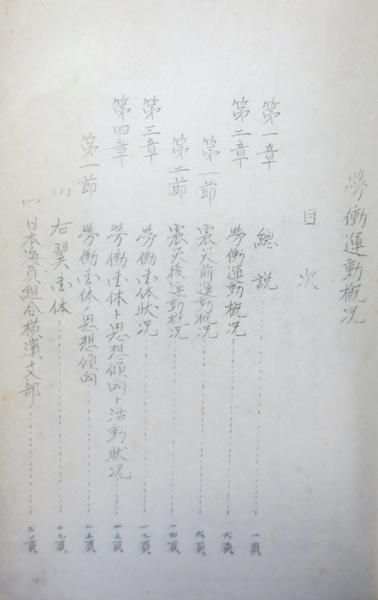 勞働運動概況
目次
第一章 總説 一頁
第二章 勞働運動概況 六頁
第一節 震災前運動概況 六頁
第二節 震災後運動概況 一四頁
第三章 勞働団体狀況 一九頁
第四章 勞働団体ト思想傾向ト活動狀況
第一節 勞働団体ト思想傾向
(一) 右翼団体
(一) 日本海員組合橫濱支部